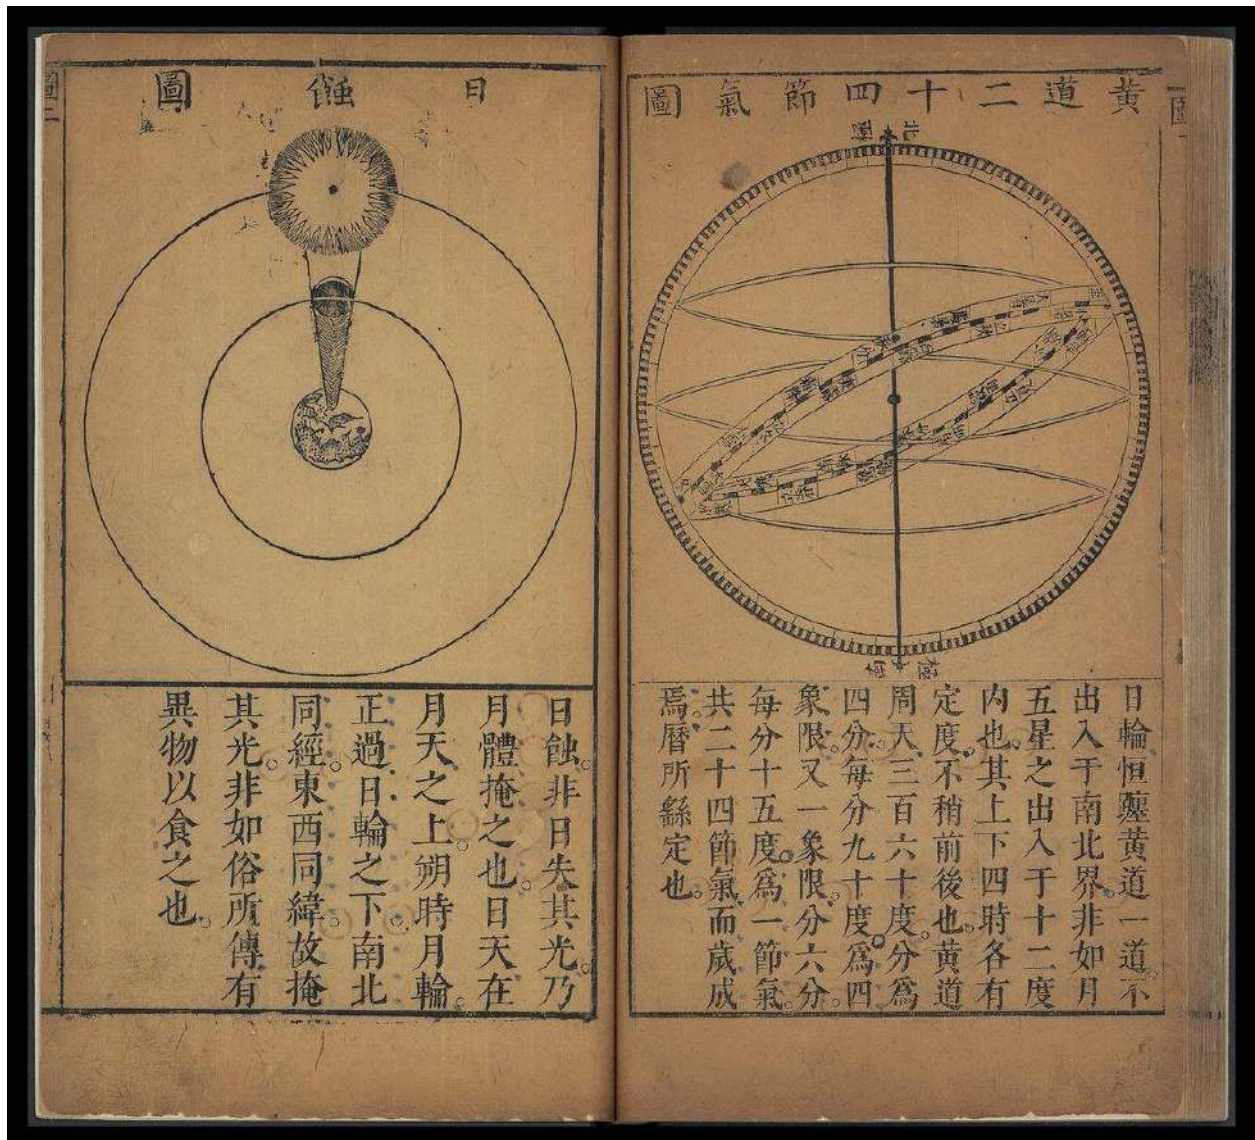 黃道二十四節氣圖
日輪恒躔黃道一道不
出入于南北界非如月
五星之出入于十二度
内也其上下四時各有
定度不稍前後也黃道
周天三百六十度分爲
四分每分九十度爲四
象限又一象限分六分
每分十五度爲一節氣
共二十四節氣而歲成
焉曆所繇定也
日蝕圖
日蝕非日失其光乃
月體掩之也日天在
月天之上朔時月輪
正過日輪之下南北
同經東西同緯故掩
其光非如俗所傳有
異物以食之也
圖二